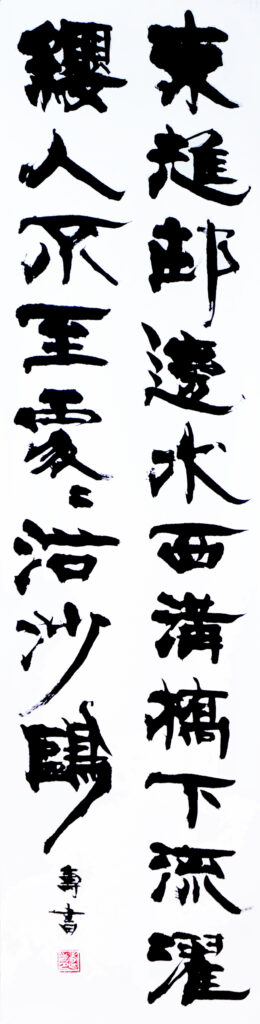 東邨邊水西溝橋下流濯
纓人不至處〻浴沙鷗
壽書